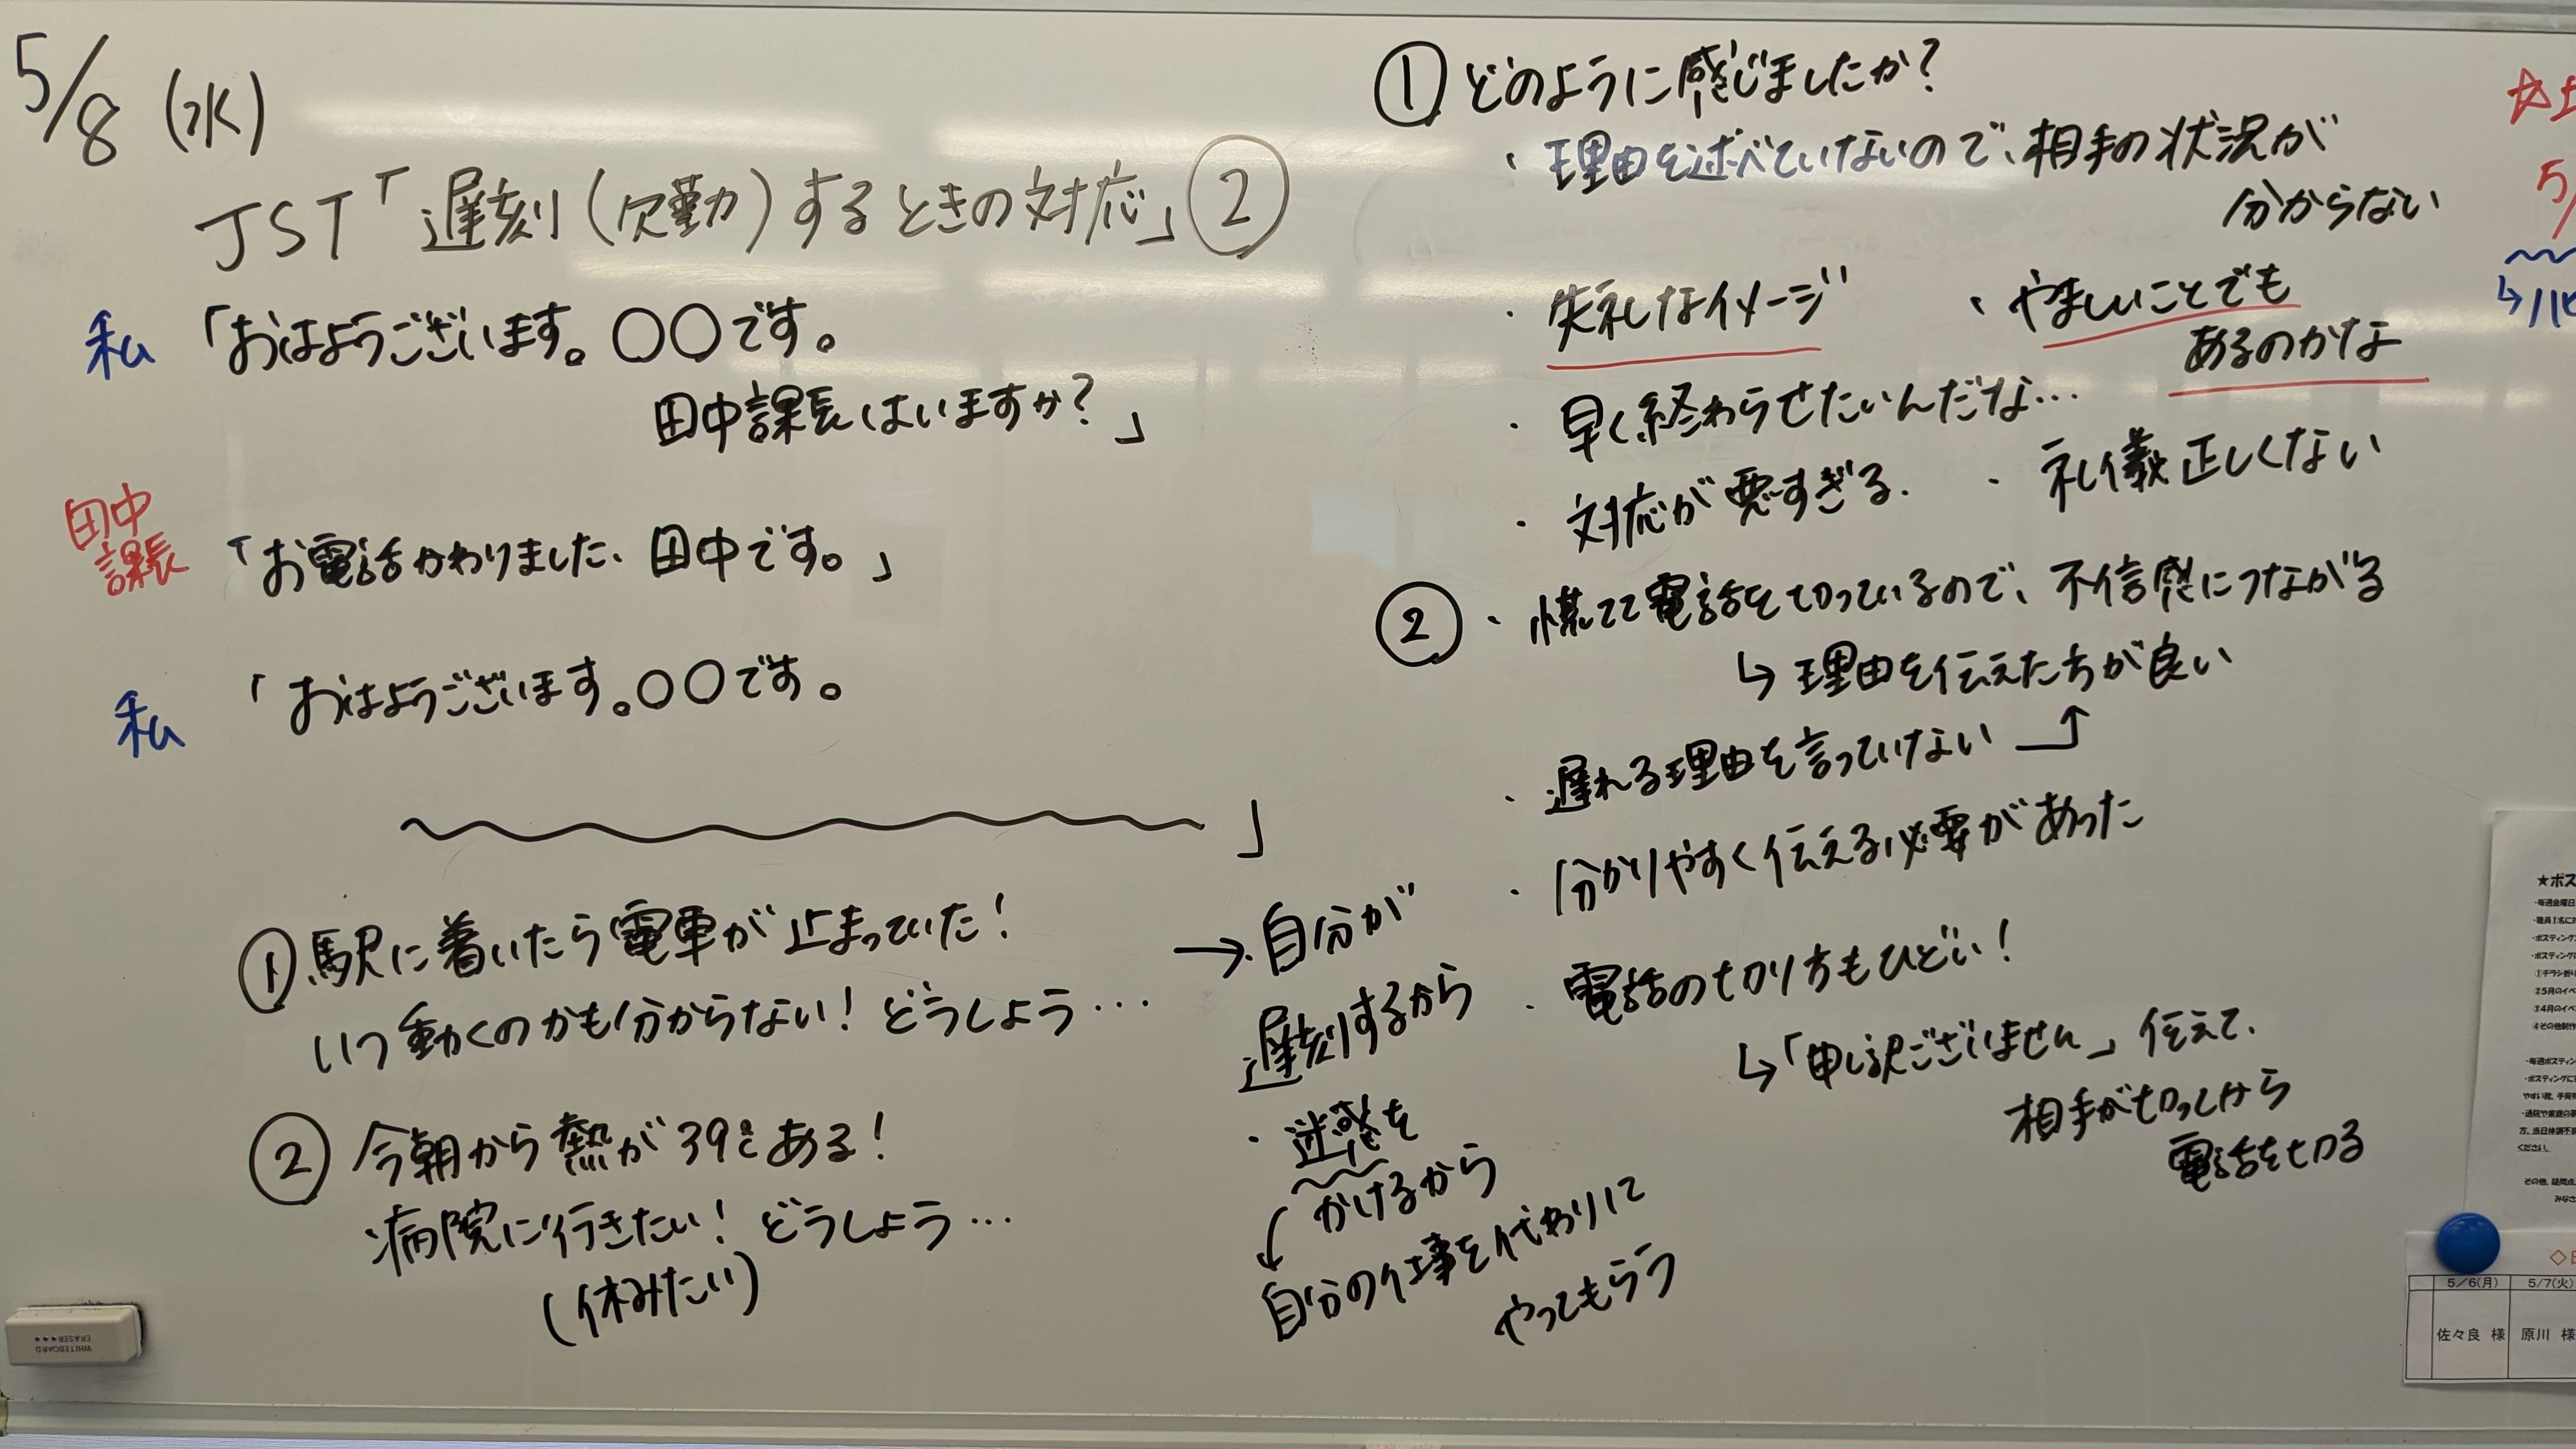 5/8 (水)
JST「遅刻(欠勤)するときの対応」②
私「おはようございます。〇〇です。
田中課長はいますか?」
田中
課長
「お電話かわりました、田中です。」
私「おはようございます。〇〇です。
」
① 駅に着いたら電車が止まっていた!
いつ動くのかも分からない!どうしよう…
② 今朝から熱が39℃ある!
病院に行きたい!どうしよう…
(休みたい)
→・自分が
遅刻するから
・迷惑を
かけるから
自分の仕事を代わりに
やってもらう
① どのように感じましたか?
・理由を述べていないので、相手の状況が
分からない
・失礼なイメージ
・やましいことでも
あるのかな
・早く終わらせたいんだな…
・対応が悪すぎる.
・礼儀正しくない
② ・慌てて電話を切っているので、不信感につながる
↳ 理由を伝えた方が良い
・遅れる理由を言っていない
・分かりやすく伝える必要があった
・電話の切り方もひどい!
↳「申し訳ございません」伝えて、
相手が切ってから
電話を切る
☆
5/
★ポス
・毎週金曜日
・職員1名に
・ポスティング
①チラシ折り
②5月のイベ
③4月のイベ
④その他制作
・毎週ポスティン
・ポスティングに
ください。
5/6(月) 5/7(火)
佐々良 様 原川 様
WHITEBOARD
ERASER★★★